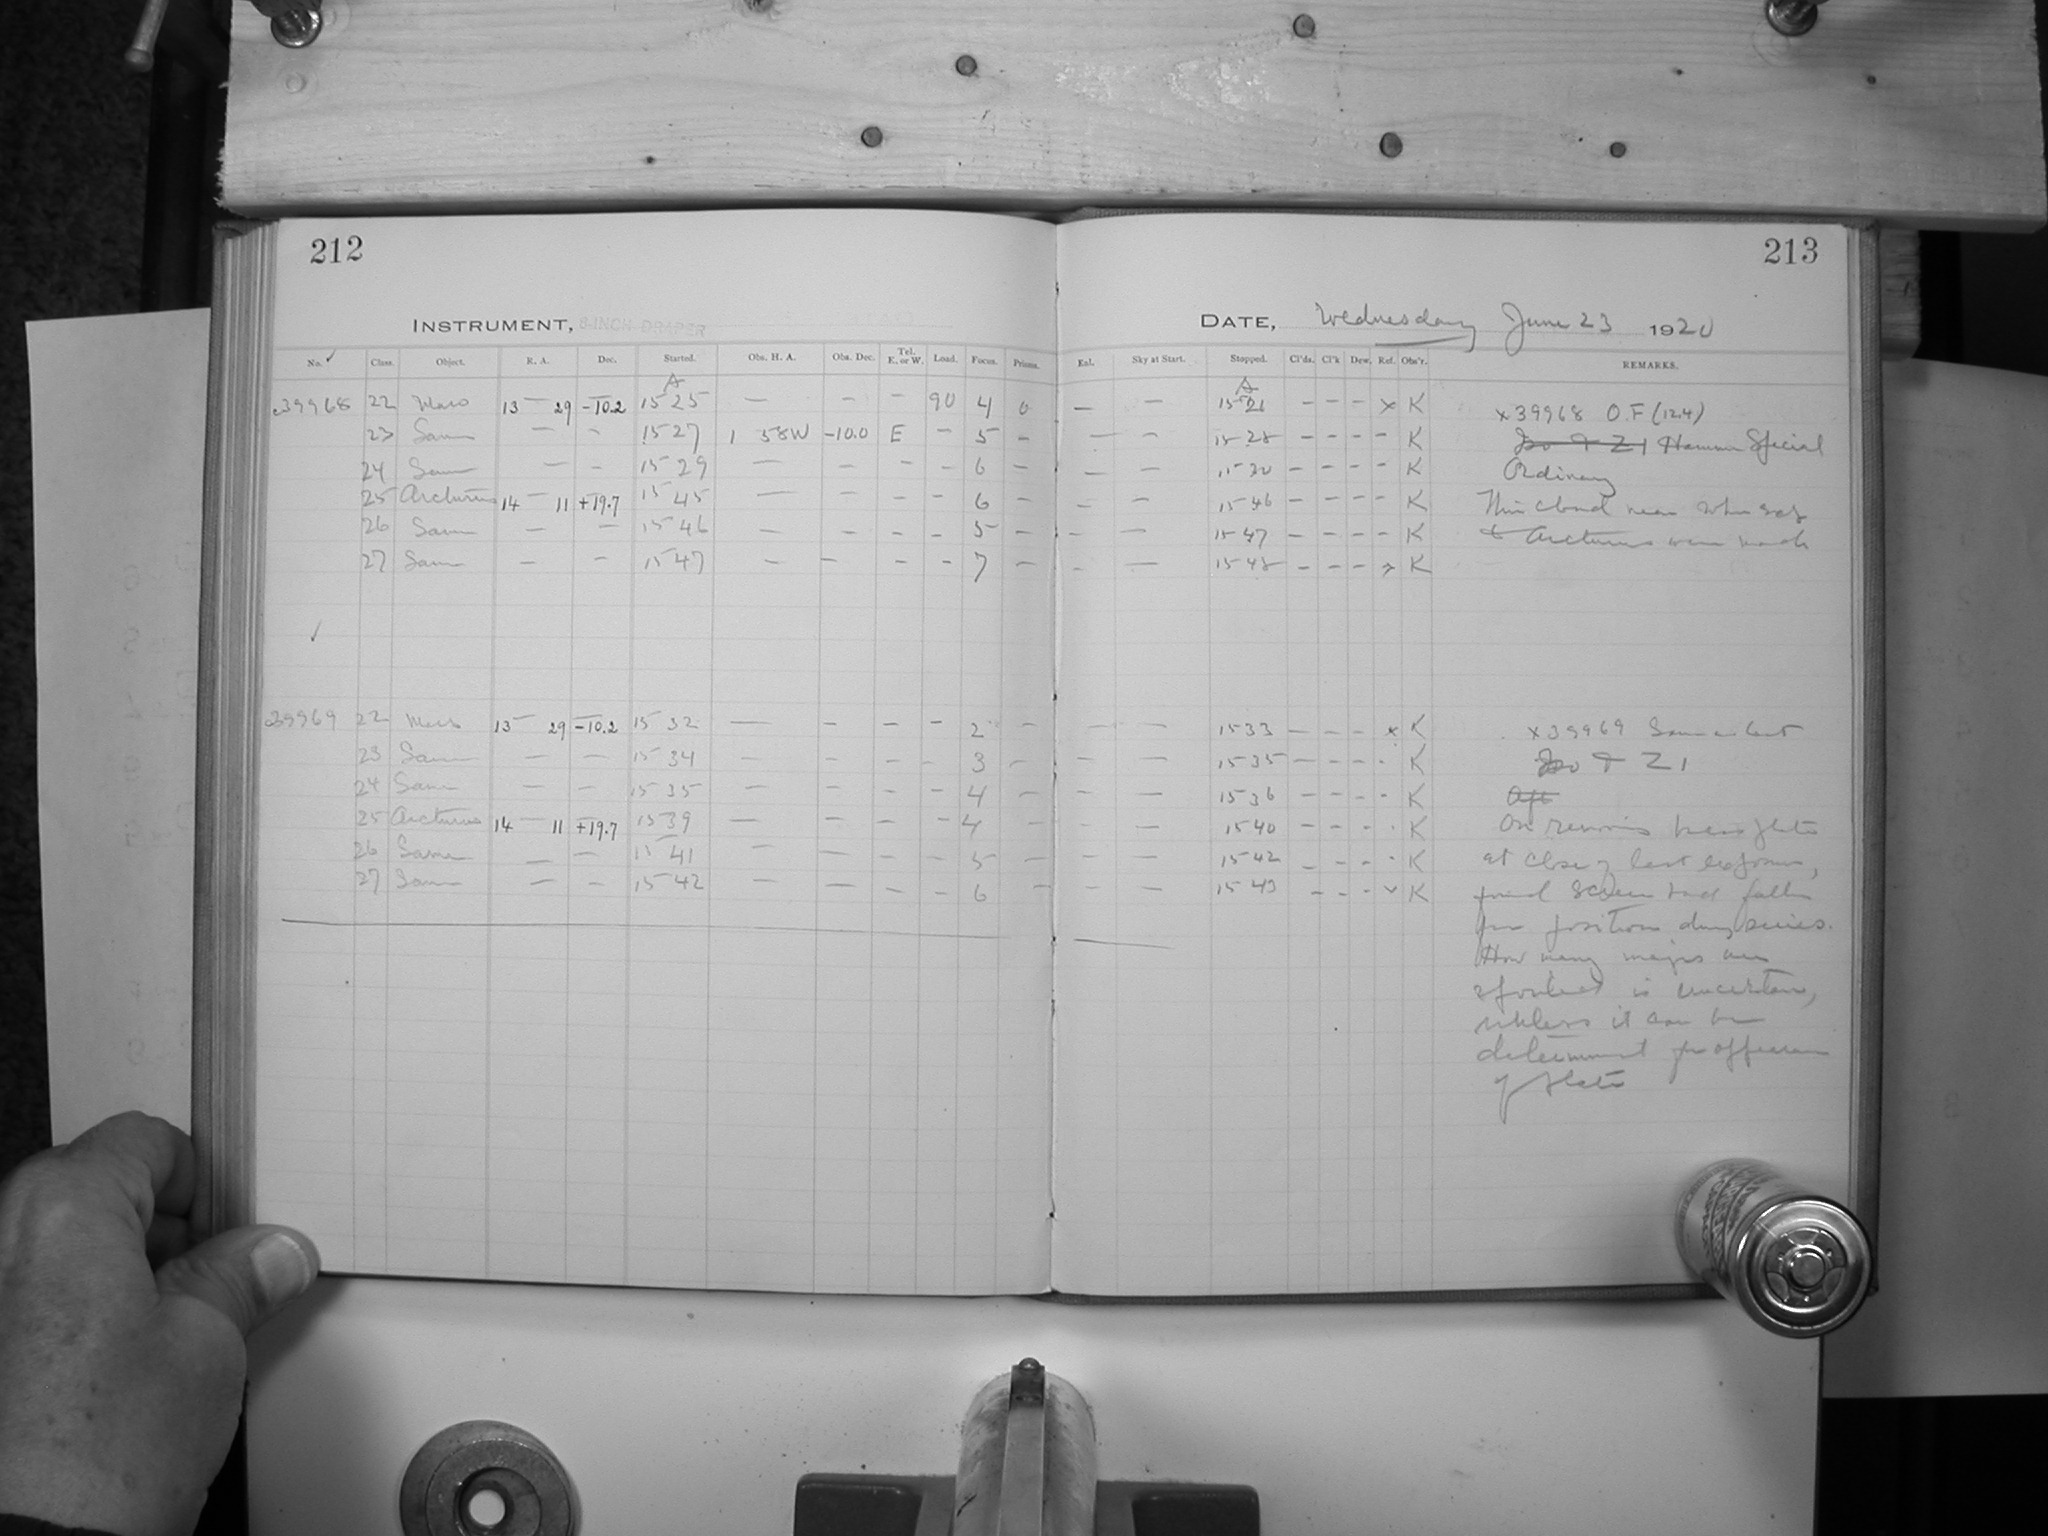 212
213
INSTRUMENT, 8-INCH DRAPER
DATE, Wednesday June 23 1920
No. ✓ Class. Object. R. A. Dec. Started. Obs. H. A. Obs. Dec. Tel. E. or W. Load. Focus. Prisms. Exl. Sky at Start. Stopped. Cl'ds. Cl'k Dew. Ref. Obs'r. REMARKS.
A A
c39968 22 Mars 13 — 29 -10.2 15 25 — — — 90 4 0 — — 15 26 — — — x K x 39968 O.F (12.4)
23 Same — — 15 27 1 58W -10.0 E — 5 — — — 15 28 — — — — K Iso + Z1 Hammer Special
24 Same — — 15 29 — — — — 6 — — — 15 30 — — — — K Ordinary
25 Arcturus 14 — 11 +19.7 15 45 — — — — 6 — — — 15 46 — — — — K Thin cloud near
26 Same — — 15 46 — — — — 5 — — — 15 47 — — — — K & Arcturus were made
27 Same — — 15 47 — — — — 7 — — — 15 48 — — — x K
✓
c39969 22 Mars 13 — 29 -10.2 15 32 — — — — 2 — — — 15 33 — — — x K x 39969 Same as last
23 Same — — 15 34 — — — — 3 — — — 15 35 — — — - K Iso + Z1
24 Same — — 15 35 — — — — 4 — — — 15 36 — — — - K
25 Arcturus 14 — 11 +19.7 15 39 — — — — 4 — — — 15 40 — — — - K On
26 Same — — 15 41 — — — — 5 — — — 15 42 — — — - K at close of last exposure,
27 Same — — 15 42 — — — — 6 — — — 15 43 — — — x K found screen had fallen
from position during series.
How many images are
affected is uncertain,
unless it can be
determined from appearance
of plate